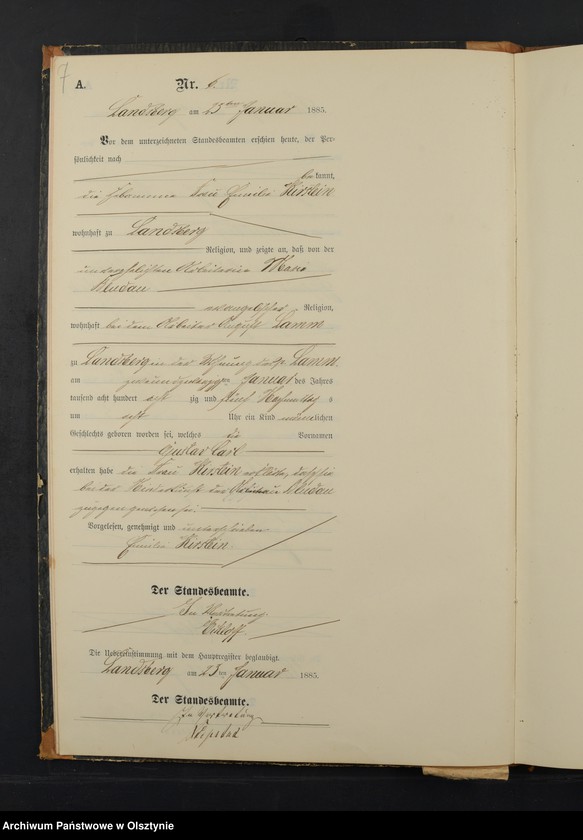 7
A. Nr. 6.
Landsberg am 23ten Januar 1885.
Vor dem unterzeichneten Standesbeamten erschien heute, der Per-
sönlichkeit nach
bekannt,
die Hebamme Frau Emilie Kirstein
wohnhaft zu Landsberg
Religion, und zeigte an, daß von der
unverehelichten Arbeiterin
Mudau
evangelischer Religion,
wohnhaft bei dem Arbeiter August Lamm
zu Landsberg in der Wohnung des Lamm
am zweiundzwanzigsten Januar des Jahres
tausend acht hundert acht zig und fünf Nachmittags
um acht Uhr ein Kind männlichen
Geschlechts geboren worden sei, welches die Vornamen
Gustav Carl
erhalten habe die Frau Kirstein erklärte, daß sie
bei der Niederkunft der Mudau
zugegen gewesen sei.
Vorgelesen, genehmigt und unterschrieben
Emilie Kirstein
Der Standesbeamte.
In Vertretung
Die Uebereinstimmung mit dem Hauptregister beglaubigt.
Landsberg am 23ten Januar 1885.
Der Standesbeamte.
In Vertretung
Archiwum Państwowe w Olsztynie